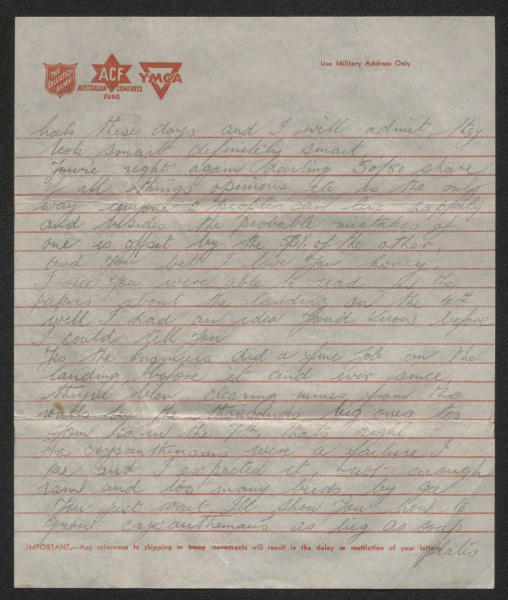 THE SALVATION ARMY
ACF
AUSTRALIAN COMFORTS FUND
YMCA
Use Military Address Only
hats these days and I will admit, they
look smart definitely smart,
You're right again darling 50/50 share
of all things opinions etc is the only
way anyone & problems can live happily
and besides the probable mistakes of
one is offset by the of the other,
and You bet I love You honey
I see You were able to read in the
papers about the landing on the 4th
well I had an idea You'd know before
I could tell You
Yes the engineers did a fine job on the
landing, before it and ever since,
they've been clearing mines from the
in the thousands big ones too
Tom is in the 7th, thats right
the crysanthemams were a failure I
see and I expected it, not enough
rain and too many birds by gee
You just wait Ill show You how to
grow crysanthemams as big as soup
plates
IMPORTANT.—Any reference to shipping or troop movements will result in the delay or mutilation of your letter.